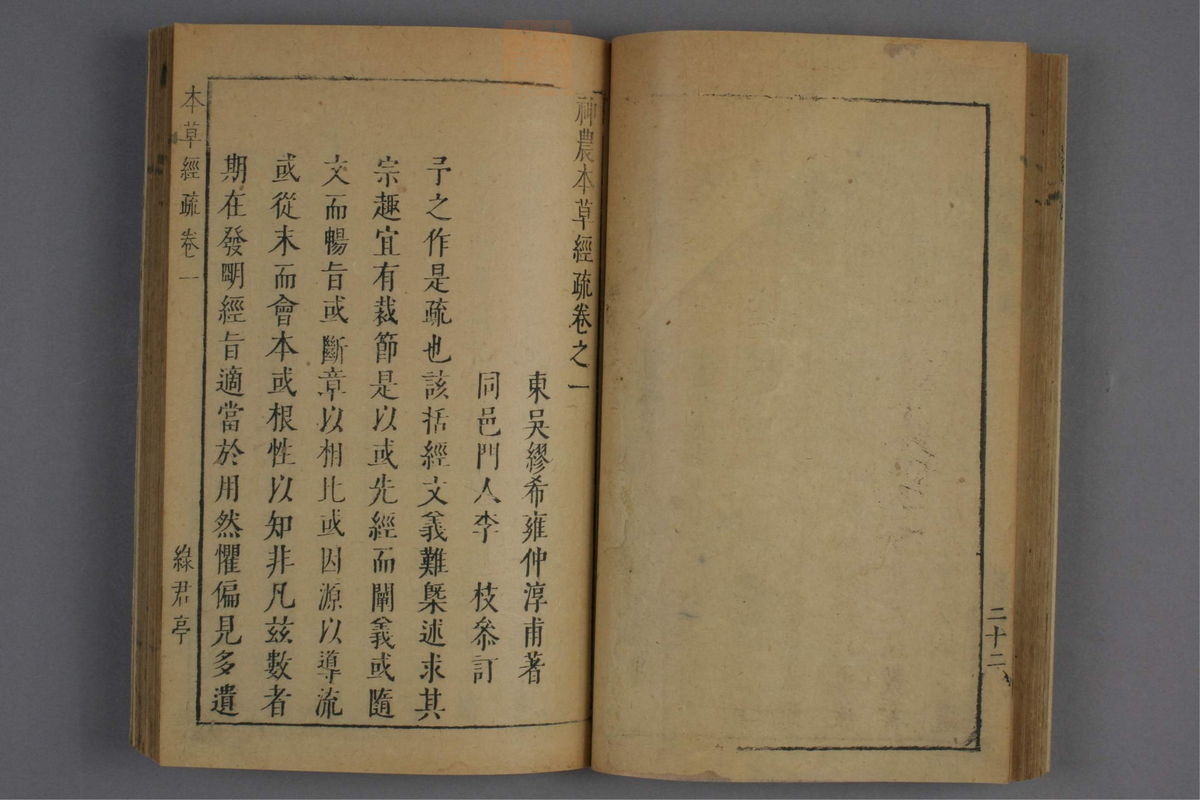 二十二
神農本草經疏卷之一
東吳繆希雍仲淳甫著
同邑門人李　枝叅訂
予之作是疏也該括經文義難槩述求其
宗趣宜有裁節是以或先經而闡義或隨
文而暢旨或斷章以相比或因源以導流
或從末而會本或根性以知非凡茲數者
期在發明經旨適當於用然懼偏見多遺
本草經疏卷一
綠君亭